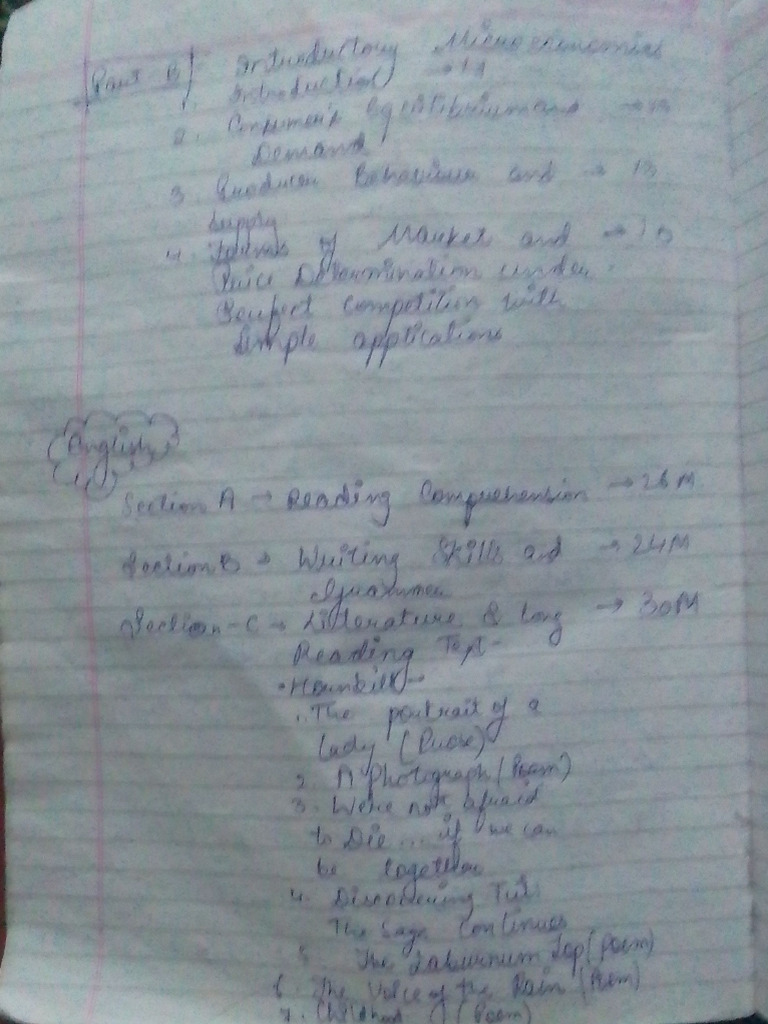 Part B Introductory Microeconomics
1. Introduction
2. Consumer's Equilibrium and
Demand
3. Producer Behaviour and → 13
Supply
4. Forms of Market and → 10
Price Determination under
Perfect Competition with
Simple applications
English
Section A → Reading Comprehension → 26 M
Section B → Writing Skills and → 24M
Grammer
Section-C → Literature & Long → 30M
Reading Text-
•Hornbill→
1. The portrait of a
lady (Prose)
2. A Photograph (Poem)
3. We're not afraid
to Die... if we can
be together
4. Discovering Tut:
The Saga Continues
5. The Laburnum Top (Poem)
6. The Voice of the Rain (Poem)
7. Childhood (Poem)